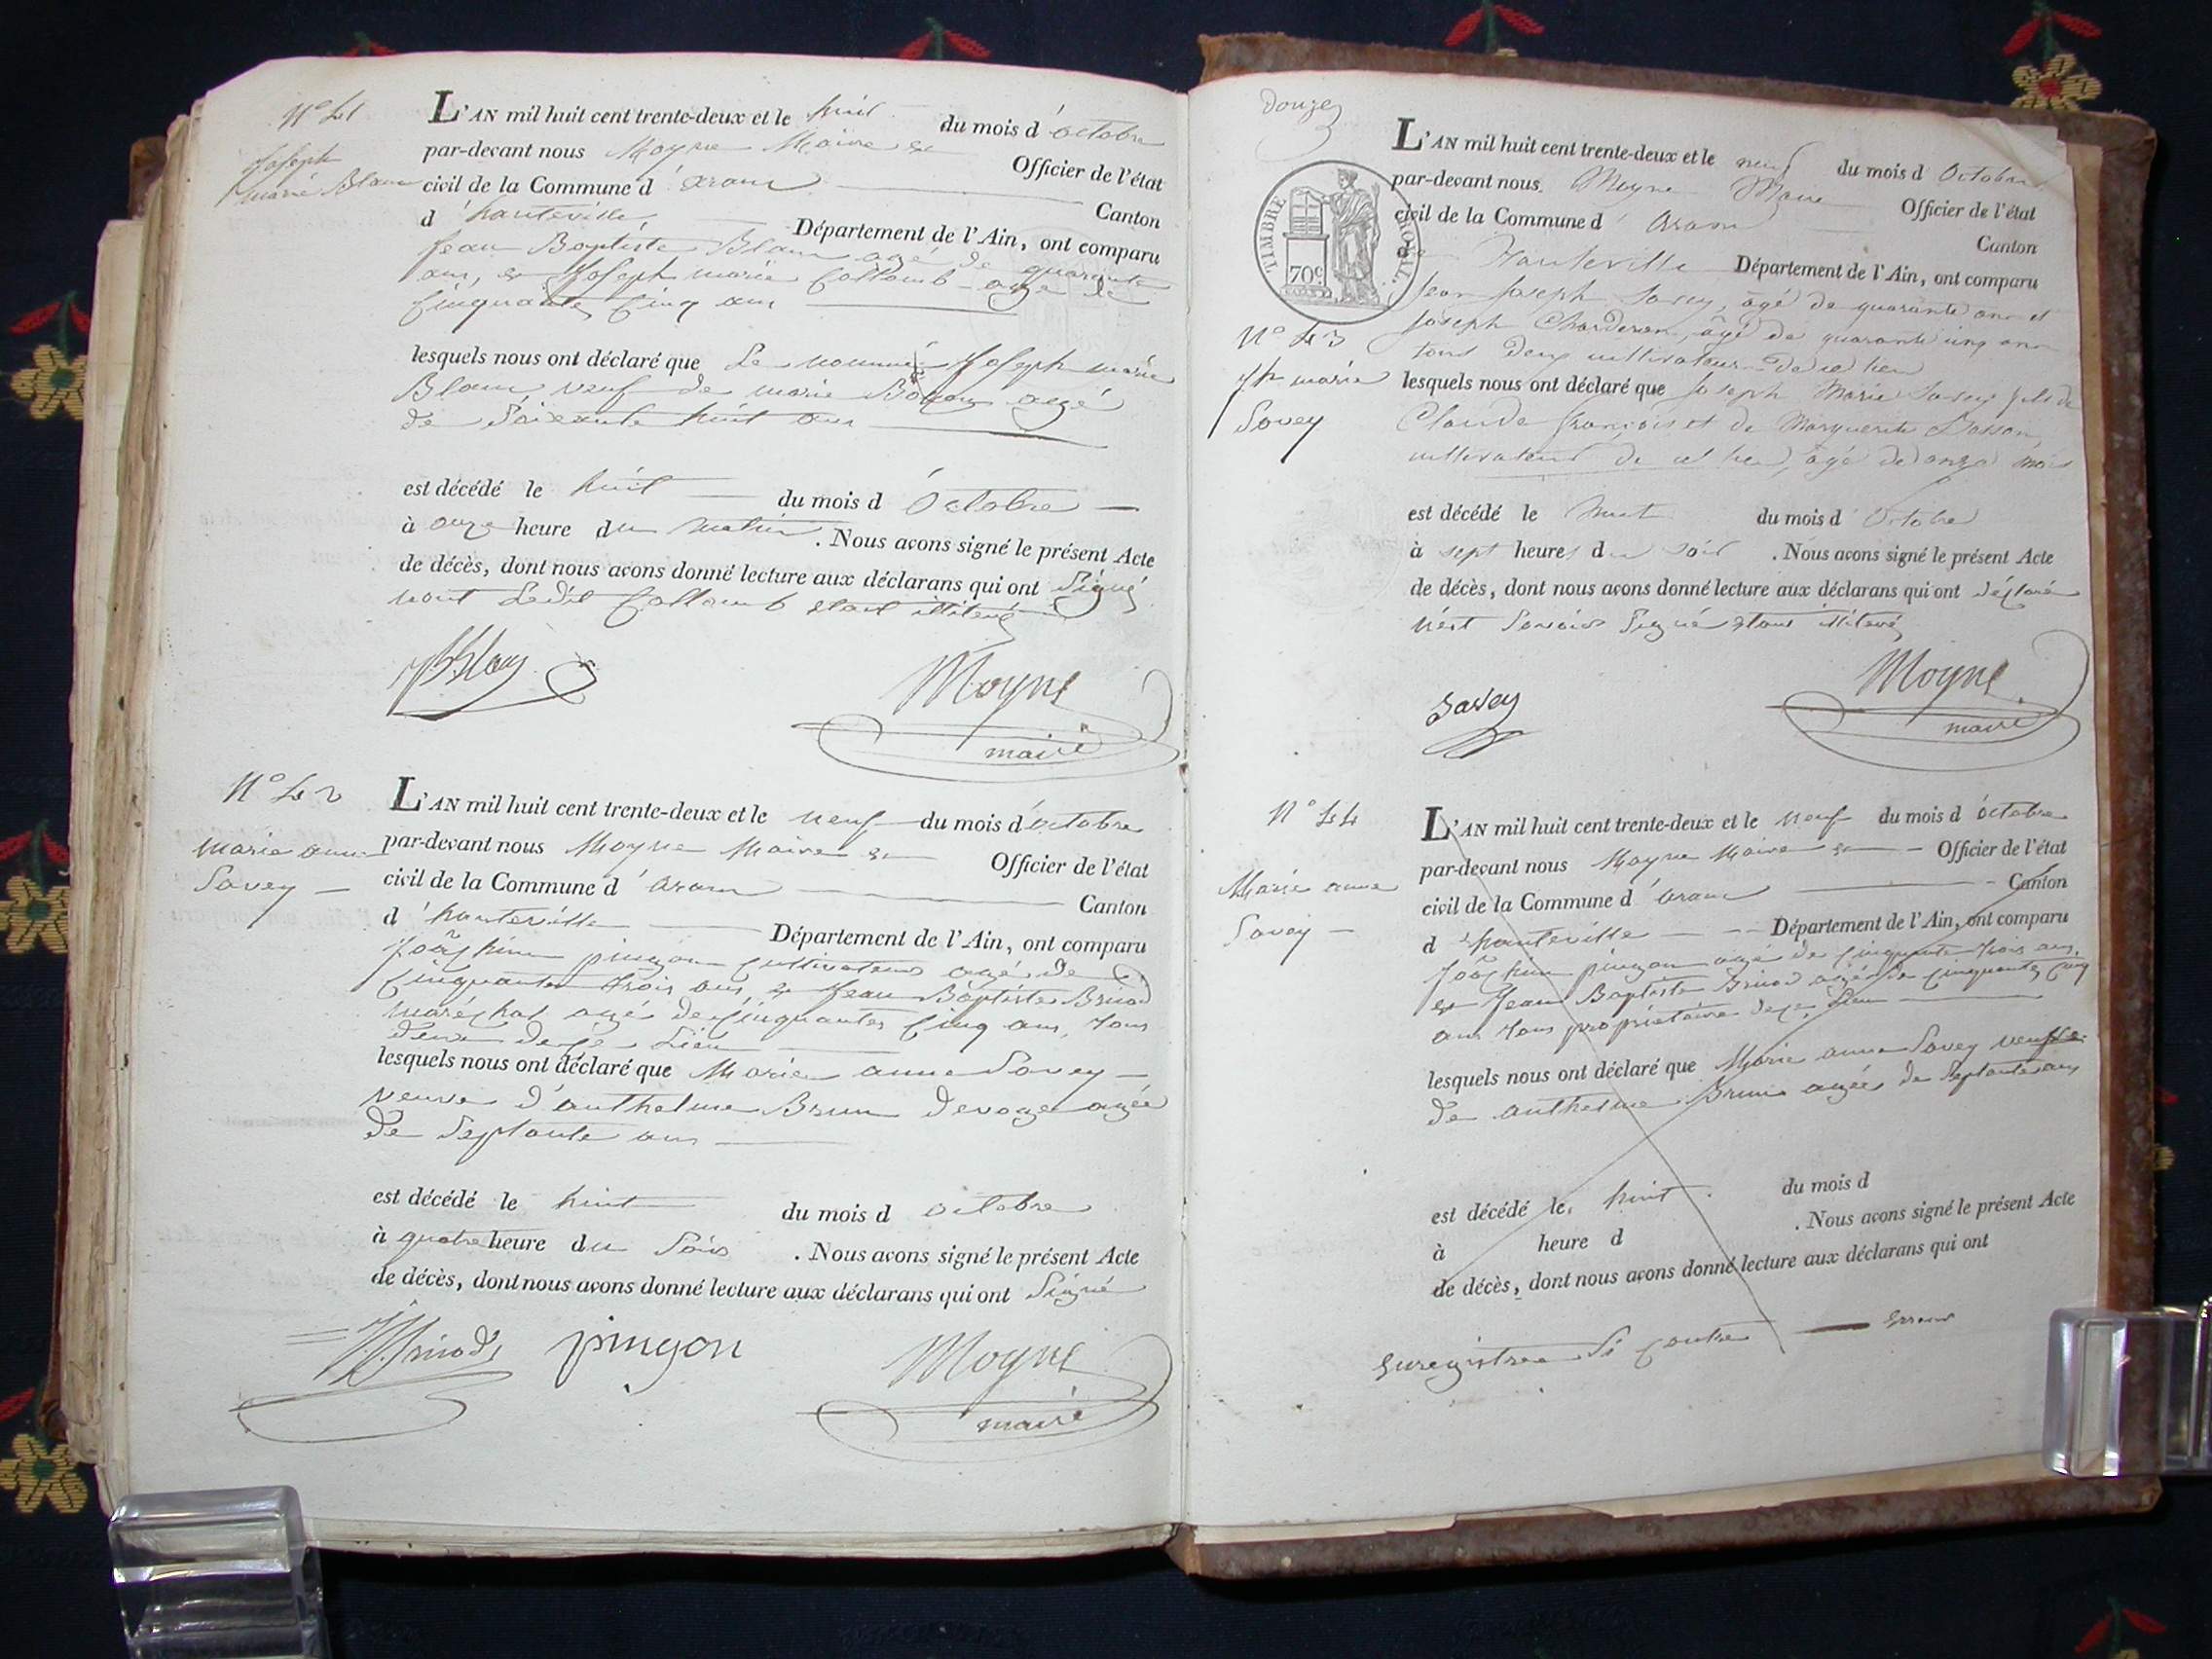 N° 41
Joseph
marie Blanc
L'AN mil huit cent trente-deux et le huit du mois d'octobre
par-devant nous Moyne Maire et Officier de l'état
civil de la Commune d'aranc Canton
d'hauteville Département de l'Ain, ont comparu
Jean Baptiste Blanc agé de quarante
ans, et Joseph marie Collomb agé de
Cinquante Cinq ans
lesquels nous ont déclaré que Le nommé Joseph marie
Blanc veuf de marie agé
de Soixante huit ans
est décédé le huit du mois d'Octobre
à onze heure du matin . Nous avons signé le présent Acte
de décès, dont nous avons donné lecture aux déclarans qui ont Signé
nont Ledit Collomb etant illiteré
Moyne
maire
N° 42
marie anne
Savey
L'AN mil huit cent trente-deux et le neuf du mois d'octobre
par-devant nous Moyne Maire et Officier de l'état
civil de la Commune d'aranc Canton
d'hauteville Département de l'Ain, ont comparu
Joâchim pingon Cultivateur agé de
Cinquante trois ans, et Jean Baptiste Brinod
maréchal agé de Cinquante Cinq ans, tous
deux de ce Lieu
lesquels nous ont déclaré que Marie anne Savey
veuve d'anthelme Brun agée
de Septante ans
est décédé le huit du mois d octobre
à quatre heure du Soir . Nous avons signé le présent Acte
de décès, dont nous avons donné lecture aux déclarans qui ont Signé
Brinod pingon
Moyne
maire
douze
TIMBRE ROYAL
70c
N° 43
Jh marie
Savey
L'AN mil huit cent trente-deux et le neuf du mois d Octobre
par-devant nous Moyne Maire Officier de l'état
civil de la Commune d'Aranc Canton
de Hauteville Département de l'Ain, ont comparu
Jean Joseph Savey, agé de quarante ans et
Joseph Charderon, âgé de quarante cinq ans
tous deux cultivateurs de ce lieu
lesquels nous ont déclaré que Joseph Marie Savey fils de
Claude françois et de Marguerite
cultivateurs de ce lieu, agé de onze mois
est décédé le huit du mois d'Octobre
à sept heures du soir . Nous avons signé le présent Acte
de décès, dont nous avons donné lecture aux déclarans qui ont déclaré
Signé etant illiteré
Savey
Moyne
maire
N° 44
Marie anne
Savey
L'AN mil huit cent trente-deux et le neuf du mois d'octobre
par-devant nous Moyne Maire et Officier de l'état
civil de la Commune d'aranc Canton
d'hauteville Département de l'Ain, ont comparu
Joâchim pingon agé de Cinquante trois ans,
et Jean Baptiste Brinod agé de Cinquante Cinq
ans tous propriétaire de ce Lieu
lesquels nous ont déclaré que Marie anne Savey
de anthelme Brun agée de Septante ans
est décédé le huit du mois d
à heure d . Nous avons signé le présent Acte
de décès, dont nous avons donné lecture aux déclarans qui ont
Enregistree Si Contre Erreur